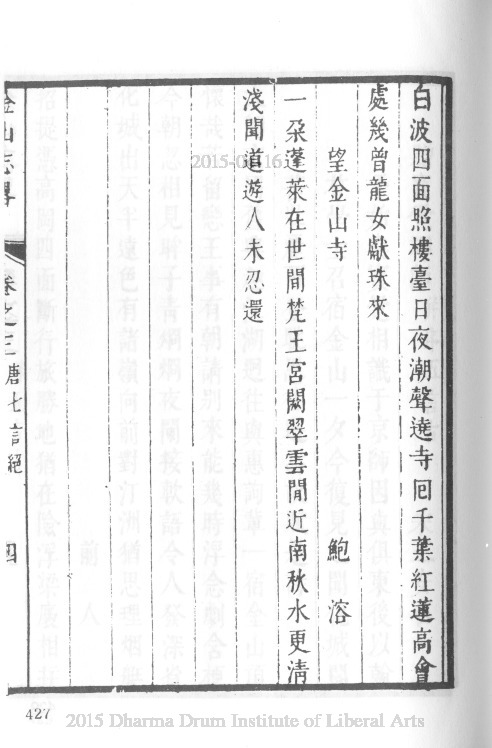 白波四面照樓臺日夜潮聲遶寺囘千葉紅蓮高會
處幾曾龍女獻珠來
望金山寺 鮑溶
一朶蓬萊在世間梵王宮闕翠雲閒近南秋水更淸
淺聞道遊人未忍還
金山志畧 卷之三 唐七言絕 四
427
2015 Dharma Drum Institute of Liberal Arts